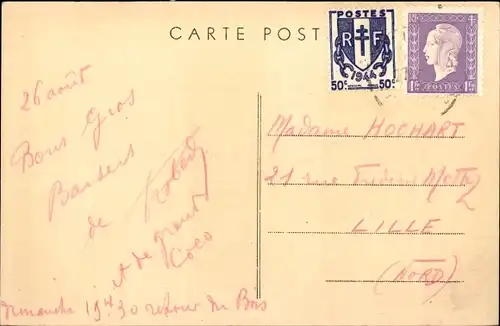 CARTE POST
POSTES
R F
1944
50c 50c
1F 1F
POSTES
26 août
Bons Gros
Baisers
de Robert
et de grand
Coco
dimanche 19h30 retour du Bois
Madame HOCHART
21 rue Frédéric
LILLE
(NORD)